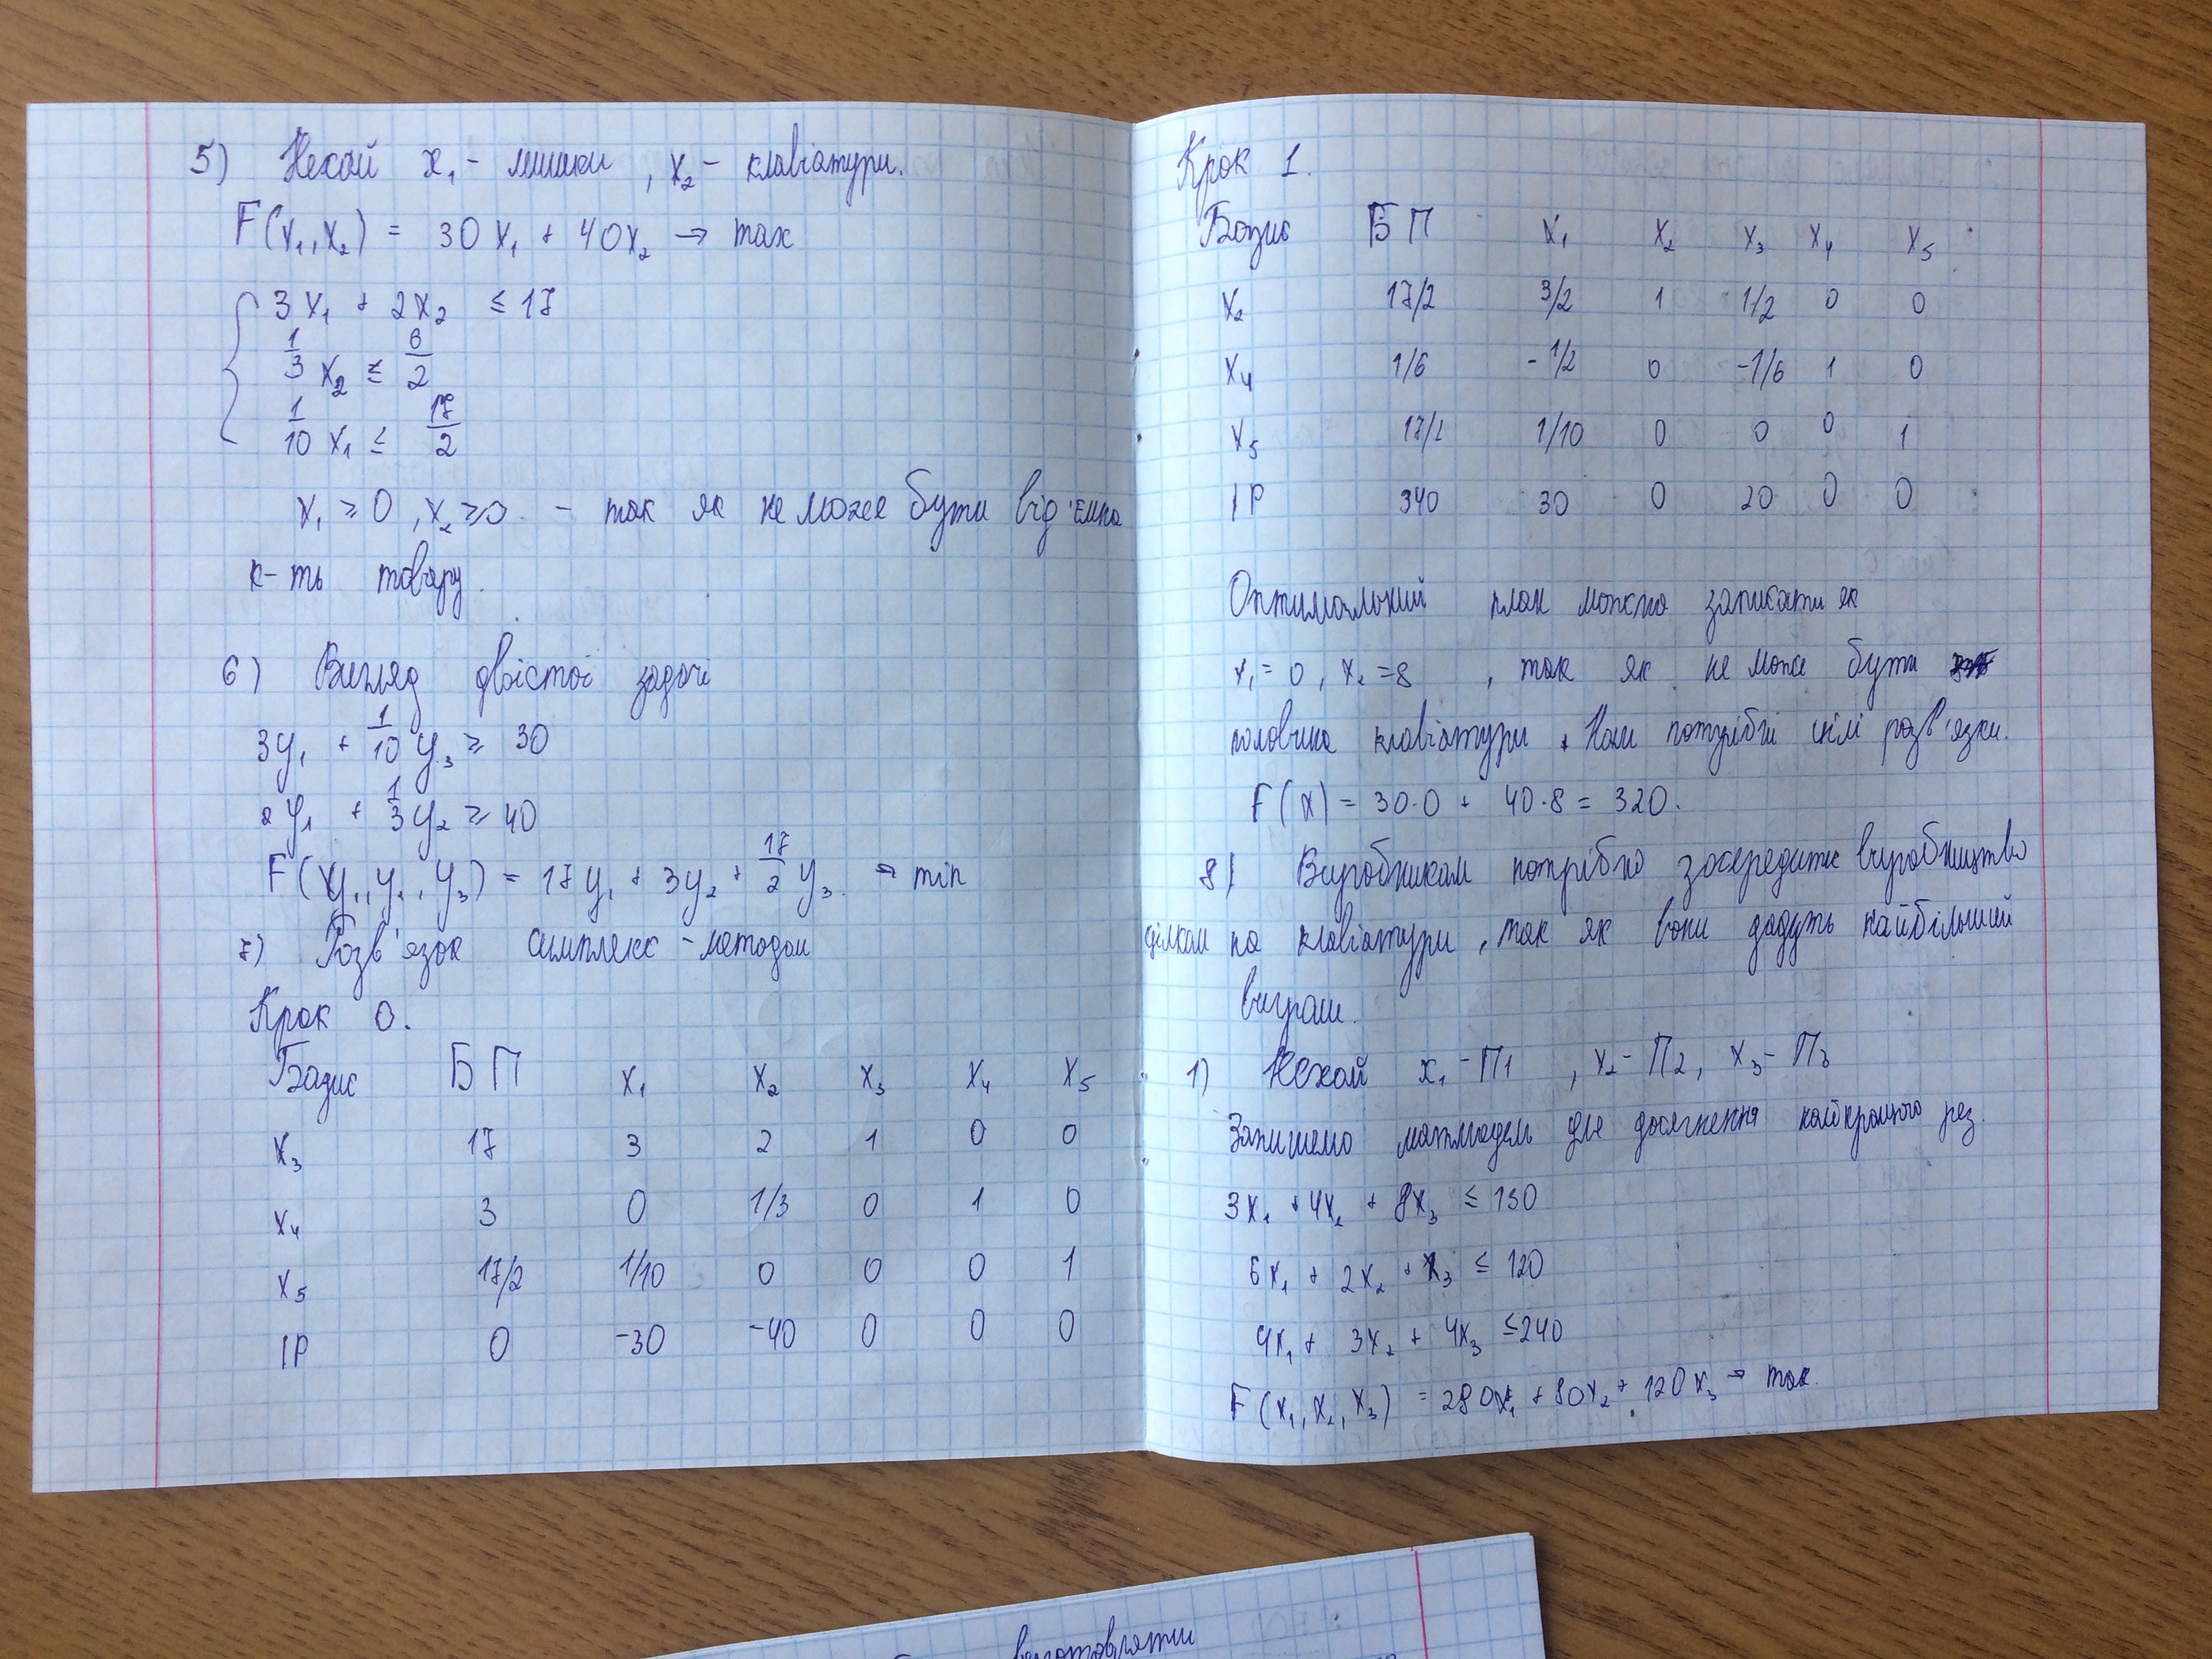 5) Нехай x₁ - мишки , x₂ - клавіатури.
F(x₁,x₂) = 30x₁ + 40x₂ → max
3x₁ + 2x₂ ≤ 17
1/3 x₂ ≤ 6/2
1/10 x₁ ≤ 17/2
x₁ ≥ 0 , x₂ ≥ 0. - так як не може бути від'ємна
к-ть товару.
6) Вигляд двоїстої задачі
3y₁ + 1/10 y₃ ≥ 30
2y₁ + 1/3 y₂ ≥ 40
F(y₁, y₂, y₃) = 17y₁ + 3y₂ + 17/2 y₃. → min
7) Розв'язок симплекс-методом
Крок 0.
Базис БП x₁ x₂ x₃ x₄ x₅
x₃ 17 3 2 1 0 0
x₄ 3 0 1/3 0 1 0
x₅ 17/2 1/10 0 0 0 1
ІР 0 -30 -40 0 0 0
Крок 1.
Базис БП x₁ x₂ x₃ x₄ x₅
x₂ 17/2 3/2 1 1/2 0 0
x₄ 1/6 -1/2 0 -1/6 1 0
x₅ 17/2 1/10 0 0 0 1
ІР 340 30 0 20 0 0
Оптимальний план можна записати як
x₁ = 0 , x₂ = 8 , так як не може бути
половина клавіатури. Нам потрібні цілі розв'язки.
F(x) = 30·0 + 40·8 = 320.
8) Виробникам потрібно зосередити виробництво
цілком на клавіатури, так як вони дадуть найбільший
виграш.
1) Нехай x₁ - П1 , x₂ - П2, x₃ - П3
Запишемо матмодель для досягнення найкращого рез.
3x₁ + 4x₂ + 8x₃ ≤ 130
6x₁ + 2x₂ + x₃ ≤ 120
4x₁ + 3x₂ + 4x₃ ≤ 240
F(x₁, x₂, x₃) = 280x₁ + 80x₂ + 120x₃ → max.
виготовляти